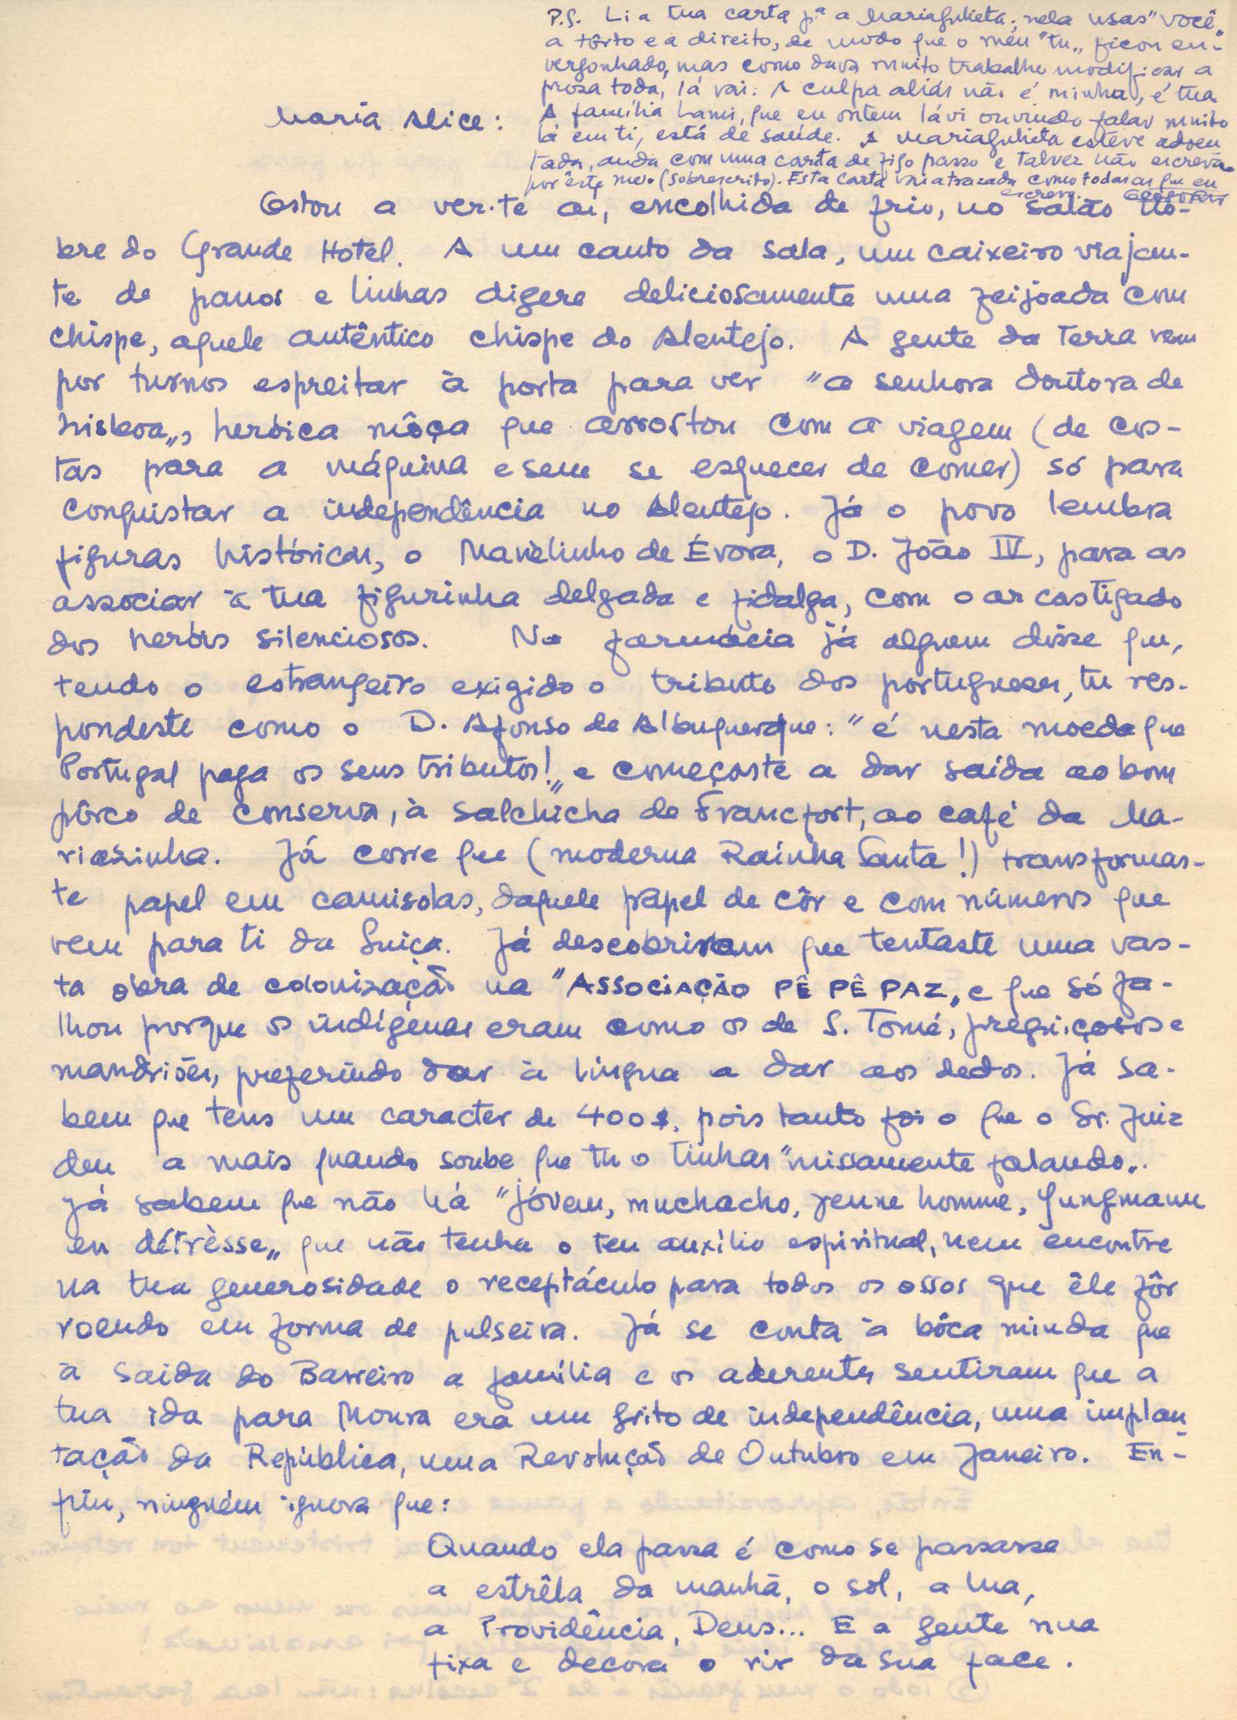 P.S. Li a tua carta pª a Mariajulieta; nela usas "você"
a tôrto e a direito, de modo que o meu "tu" ficou en-
vergonhado, mas como dava muito trabalho modificar a
prosa toda, lá vai. A culpa aliás não é minha, é tua
A família Lami, que eu ontem lá vi ouvindo falar muito
lá em ti, está de saúde. A Mariajulieta esteve adoen
tada, anda com uma carta de figo passo e talvez não escreva
por êste meio (sobrescrito). Esta carta vai atrazada como todas as que eu
escrevo
Maria Alice:
Estou a ver-te aí, encolhida de frio, no salão no-
bre do Grande Hotel. A um canto da sala, um caixeiro viajan-
te de panos e linhas digere deliciosamente uma feijoada com
chispe, aquele autêntico chispe do Alentejo. A gente da Terra vem
por turnos espreitar à porta para ver "a senhora doutora de
Lisboa", heróica môça que arrostou com a viagem (de cos-
tas para a máquina e sem se esquecer de comer) só para
conquistar a independência no Alentejo. Já o povo lembra
figuras históricas, o Manelinho de Évora, o D. João IV, para as
associar à tua figurinha delgada e fidalga, com o ar castigado
dos heróis silenciosos. Na farmácia já alguem disse que,
tendo o estrangeiro exigido o tributo dos portugueses, tu res-
pondeste como o D. Afonso de Albuquerque: "é nesta moeda que
Portugal paga os seus tributos!" e começaste a dar saída ao bom
pôrco de conserva, à salchicha de Francfort, ao café da Ma-
riazinha. Já corre que (moderna Raínha Santa!) transformas-
te papel em camisolas, daquele papel de côr e com números que
vem para ti da Suiça. Já descobriram que tentaste uma vas-
ta obra de colonização na "ASSOCIAÇÃO PÊ PÊ PAZ", e que só fa-
lhou porque os indígenas eram como os de S. Tomé, preguiçosos e
mandriões, preferindo dar à língua a dar aos dedos. Já sa-
bem que tens um caracter de 400$, pois tanto foi o que o Sr. Juiz
deu a mais quando soube que tu o tinhas "missamente falando".
Já sabem que não há "jóvem, muchacho, jeune homme, Jungmann
en détrèsse" que não tenha o teu auxílio espiritual, nem encontre
na tua generosidade o receptáculo para todos os ossos que êle fôr
roendo em forma de pulseira. Já se conta à bôca miuda que
à saida do Barreiro a família e os aderentes sentiram que a
tua ida para Moura era um grito de independência, uma implan
tação da República, uma Revolução de Outubro em Janeiro. En-
fim, ninguém ignora que:
Quando ela passa é como se passasse
a estrêla da manhã, o sol, a lua,
a Providência, Deus... E a gente nua
fixa e decora o rir da sua face.